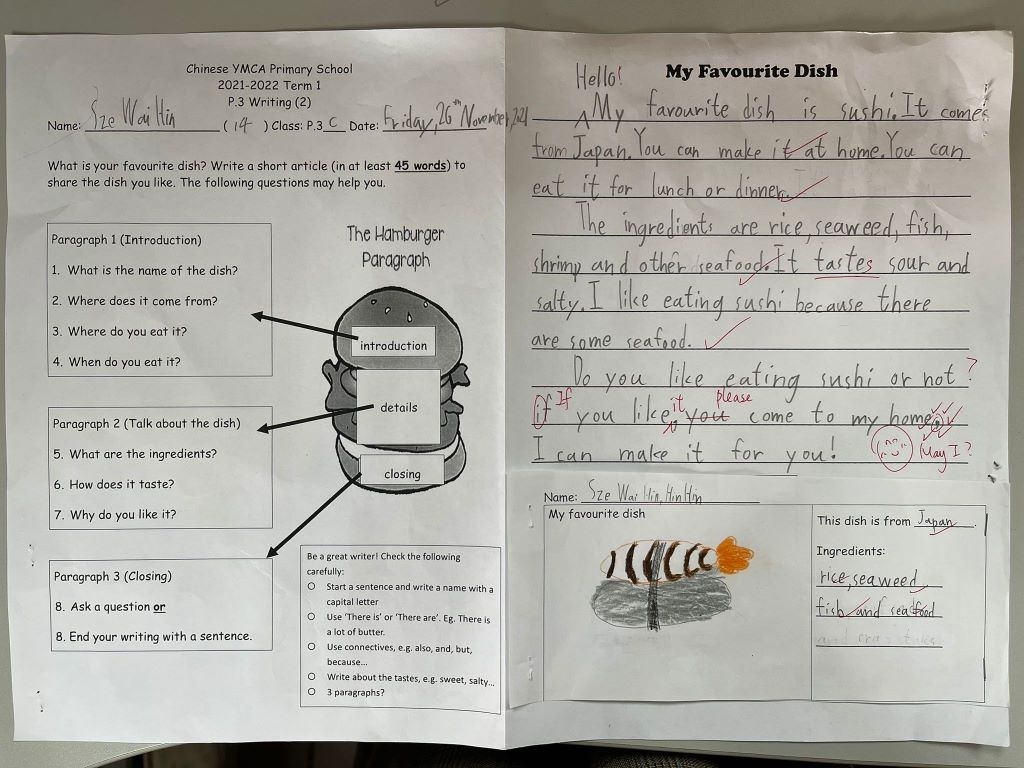 Chinese YMCA Primary School
2021-2022 Term 1
P.3 Writing (2)
Name: Sze Wai Hin ( 14 ) Class: P.3 C Date: Friday, 26th November, 2021
What is your favourite dish? Write a short article (in at least 45 words) to
share the dish you like. The following questions may help you.
Paragraph 1 (Introduction)
1. What is the name of the dish?
2. Where does it come from?
3. Where do you eat it?
4. When do you eat it?
The Hamburger
Paragraph
introduction
details
closing
Paragraph 2 (Talk about the dish)
5. What are the ingredients?
6. How does it taste?
7. Why do you like it?
Paragraph 3 (Closing)
8. Ask a question or
8. End your writing with a sentence.
Be a great writer! Check the following
carefully:
Start a sentence and write a name with a
capital letter
Use 'There is' or 'There are'. Eg. There is
a lot of butter.
Use connectives, e.g. also, and, but,
because...
Write about the tastes, e.g. sweet, salty...
3 paragraphs?
My Favourite Dish
Hello!
My favourite dish is sushi. It comes
from Japan. You can make it at home. You can
eat it for lunch or dinner.
The ingredients are rice, seaweed, fish,
shrimp and other seafood. It tastes sour and
salty. I like eating sushi because there
are some seafood.
Do you like eating sushi or not?
If it please
if you like you come to my home.
I can make it for you! May I?
Name: Sze Wai Hin, HinHin
My favourite dish
This dish is from Japan
Ingredients:
rice, seaweed,
fish and seafood